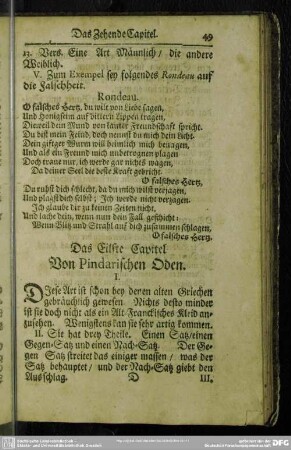 Das Zehende Capitel. 49
13. Vers. Eine Art Männlich / die andere
Weiblich.
V. Zum Exempel sey folgendes Rondeau auf
die Falschheit.
Rondeau.
O falsches Hertz, du wilt von Liebe sagen,
Und Honigseim auf bittern Lippen tragen,
Dieweil dein Mund von lauter Freundschaft spricht.
Du bist mein Feind doch nennst du mich dein Licht.
Dein giftger Wurm will heimlich mich benagen,
Und als ein Freund mich unbetrognen plagen
Doch trau nur, ich werde gar nichts wagen,
Da deiner Seel die beste Kraft gebricht.
O falsches Hertz,
Du ruhst dich schlecht, da du mich wilst verjagen,
Und plagst dich selbst; Ich werde nicht verzagen.
Ich glaube dir zu keinen Zeiten nicht,
Und lache dein, wenn nun dein Fall geschicht:
Wenn Blitz und Strahl auf dich zusammen schlagen,
O falsches Hertz.
Das Eilfte Capitel
Von Pindarischen Oden.
I.
DIese Art ist schon bey denen alten Griechen
gebräuchlich gewesen. Nichts desto minder
ist sie doch nicht als ein Alt-Fränckisches Kleid an-
zusehen. Wenigstens kan sie sehr artig kommen.
II. Sie hat drey Theile. Einen Satz/einen
Gegen-Satz und einen Nach-Satz. Der Ge-
gen Satz streitet das einiger massen / was der
Satz behauptet / und der Nach-Satz giebt den
Ausschlag. D III.